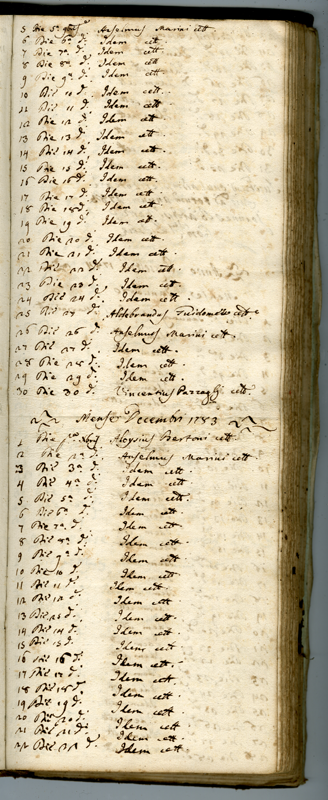 5 Die 5ª 9bris Anselmus Marini cett.
6 Die 6ª dº. Idem cett
7 Die 7ª dº. Idem cett
8 Die 8ª dº. Idem cett
9 Die 9ª dº. Idem cett
10 Die 10 dº. Idem cett.
11 Die 11 dº. Idem cett
12 Die 12 dº. Idem cett
13 Die 13 dº. Idem cett.
14 Die 14 dº. Idem cett.
15 Die 15 dº. Idem cett.
16 Die 16 dº. Idem cett.
17 Die 17 dº. Idem cett.
18 Die 18 dº. Idem cett
19 Die 19 dº. Idem cett
20 Die 20 dº. Idem cett
21 Die 21 dº. Idem cett.
22 Die 22 dº. Idem cett.
23 Die 23 dº. Idem cett.
24 Die 24 dº. Idem cett
25 Die 25 dº. Aldebrandus cett
26 Die 26 dº. Anselmus Marini cett
27 Die 27 dº. Idem cett.
28 Die 28 dº. Idem cett.
29 Die 29 dº. Idem cett.
30 Die 30 dº. Vincensius Pazzaglj cett.
Mense Decembri 1783
1 Die pª xbris Aloysius Bertoni cett.
2 Die 2ª dº. Anselmus Marini cett.
3 Die 3ª dº. Idem cett.
4 Die 4ª dº. Idem cett
5 Die 5ª dº. Idem cett.
6 Die 6ª dº. Idem cett
7 Die 7ª dº. Idem cett
8 Die 8ª dº. Idem cett
9 Die 9ª dº. Idem cett
10 Die 10 dº. Idem cett
11 Die 11 dº. Idem cett.
12 Die 12 dº. Idem cett
13 Die 13 dº. Idem cett
14 Die 14 dº. Idem cett
15 Die 15 dº. Idem cett
16 Die 16 dº. Idem cett.
17 Die 17 dº. Idem cett
18 Die 18 dº. Idem cett
19 Die 19 dº. Idem cett
20 Die 20 dº. Idem cett
21 Die 21 dº. Idem cett
22 Die 22 dº. Idem cett